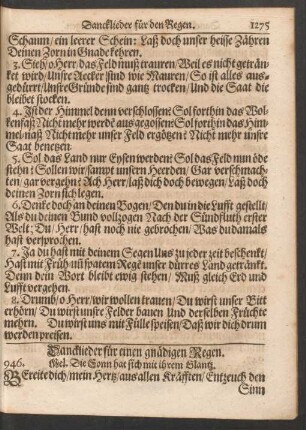 Dancklieder für den Regen. 1275
Schaum/ein leerer Schein: Laß doch unser heisse Zähren
Deinen Zorn in Gnade kehren.
3. Sieh/o Herr das Feld muß trauren/Weil es nicht geträn-
ket wird/Unsre Aecker sind wie Mauren/So ist alles aus-
gedürrt/Unsre Gründe sind gantz trocken/Und die Saat die
bleibet stocken.
4. Ist der Himmel denn verschlossen? Sol forthin das Wol-
kenfaß Nicht mehr werde ausgegossen? Sol forthin das Him-
mel-naß Nicht mehr unser Feld ergötzen? Nicht mehr unsre
Saat benetzen.
5. Sol das Land nur Eysen werden? Sol das Feld nun öde
stehn? Sollen wir/sampt unsern Heerden/Gar verschmach-
ten/gar vergehn? Ach Herr/laß dich doch bewegen/Laß doch
deinen Zorn sich legen.
6. Denke doch an deinen Bogen/Den du in die Lufft gestellt/
Als du deinen Bund vollzogen Nach der Sündfluth erster
Welt: Du/Herr/hast noch nie gebrochen/Was du damals
hast versprochen.
7. Ja du hast mit deinem Segen Uns zu jeder zeit beschenkt/
Hast mit Früh- uñ spatem Regẽ unser dürres Land getränkt.
Denn dein Wort bleibt ewig stehen/ Muß gleich Erd und
Lufft vergehen.
8. Drumb/o Herr/wir wollen trauen/Du wirst unser Bitt
erhörn/Du wirst unsre Felder bauen Und derselben Früchte
mehrn. Du wirst uns mit Fülle speisen/Daß wir dich drum
werden preisen.
Dancklieder für einen gnädigen Regen.
946. Mel. Die Sonn hat sich mit ihrem Glantz.
BEreite dich/mein Hertz/aus allen Kräfften/Entzeuch den
Sinn